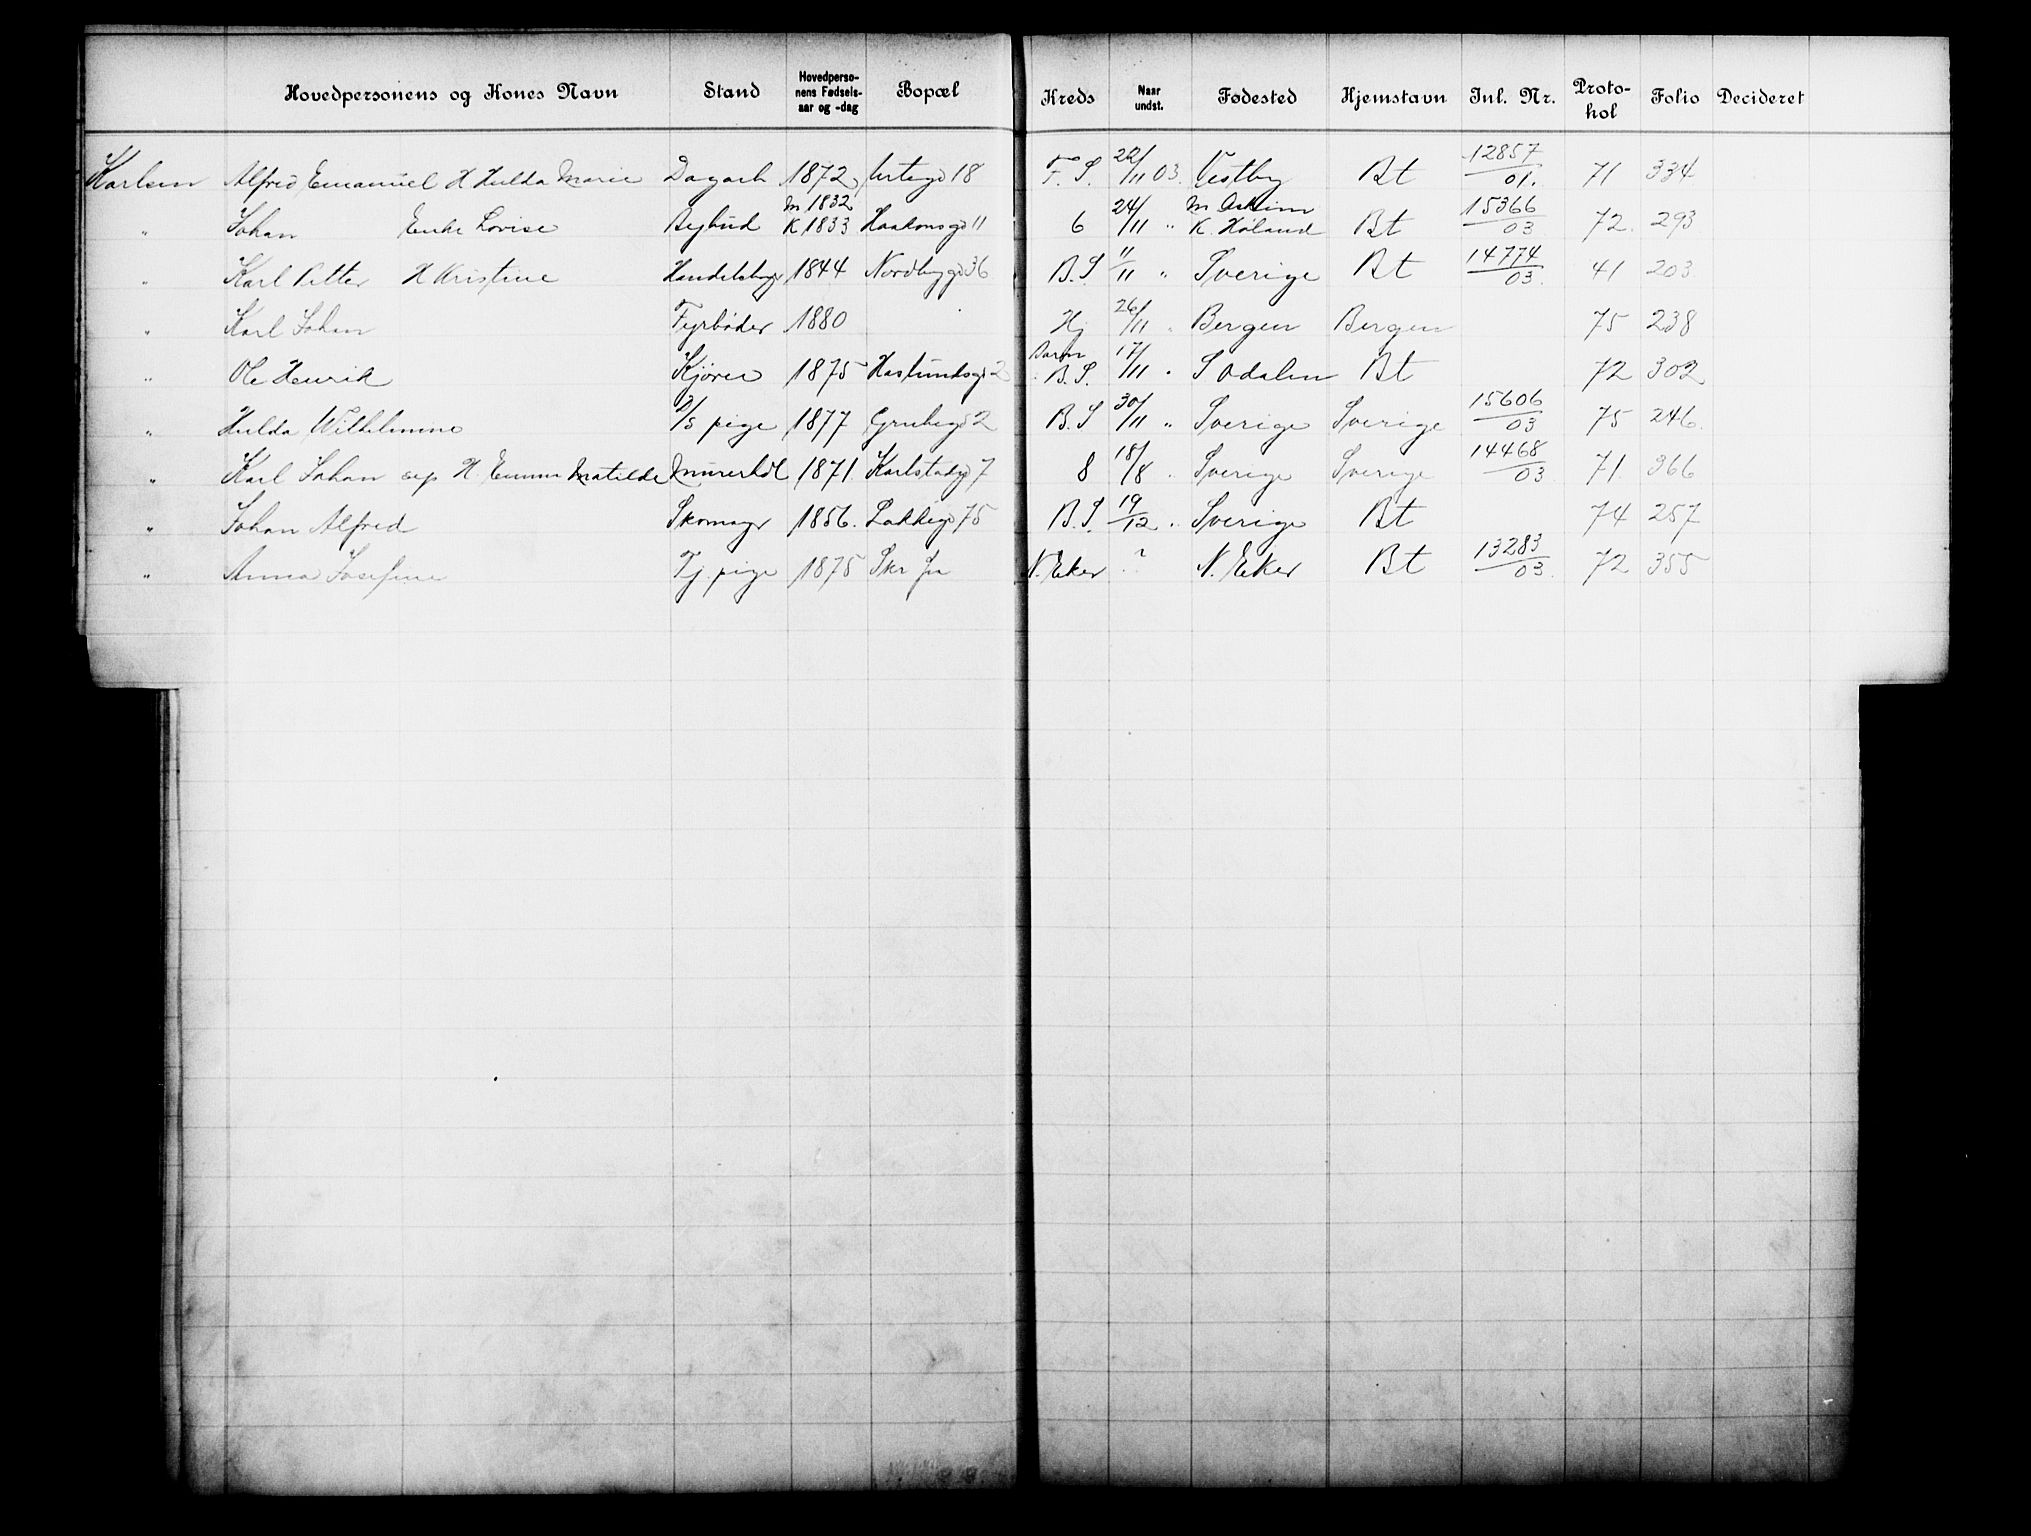 Hovedpersonens og Kones Navn Stand Hovedperso-nens Fødsels-aar og -dag Bopæl Kreds Naar undst. Fødested Hjemstavn Inl. Nr. Proto-kol Folio Decideret
Karlsen Alfred Emanuel H Hulda Marie Dagarb 1872 Urtegd 18 F. S. 22/11 03. Vestby Bt 12857/01. 71 334
" Johan Enke Lovise Bejbud M 1832 K 1833 Haakonsgd 11 6 24/11 " M Askim K. Høland Bt 15366/03 72. 293
" Karl Petter H Kristine Handelsbgr 1844 Nordbyggd 36 B. S. 11/11 " Sverige Bt 14774/03. 41 203
" Karl Johan Fyrbøder 1880 Hj 26/11 " Bergen Bergen 75 238
" Ole Henrik Kjører 1875 Haslundsgd 2 Barn B. S. 17/11 " S Odalen Bt 72 302
" Hulda Wilhelmine pige 1877 Grubegd 2 B. S 30/11 " Sverige Sverige 15606/03 75 246.
" Karl Johan sep H. Emma Matilde Murerhdl 1871. Karlstadgd 7 8 18/8 " Sverige Sverige 14468/03. 71. 366
" Johan Alfred Skomagr 1856. Lakkegd 75 B. S. 19/12 " Sverige Bt 74 257
" Anna Josefine Tj. pige 1875 Skr N. Eker ? N. Eker Bt 13283/03. 72 355